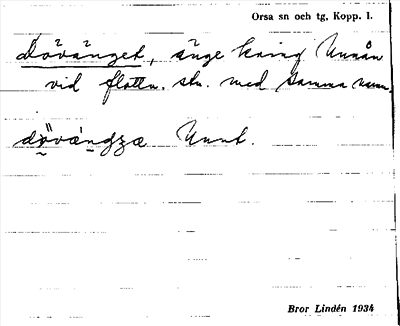 Orsa sn och tg, Kopp. l.
dövänget, änge kring Unnån
vid flottn. stn. med samma namn.
dö̤vá̱ngʒæ Unnt.
Bror Lindén 1934